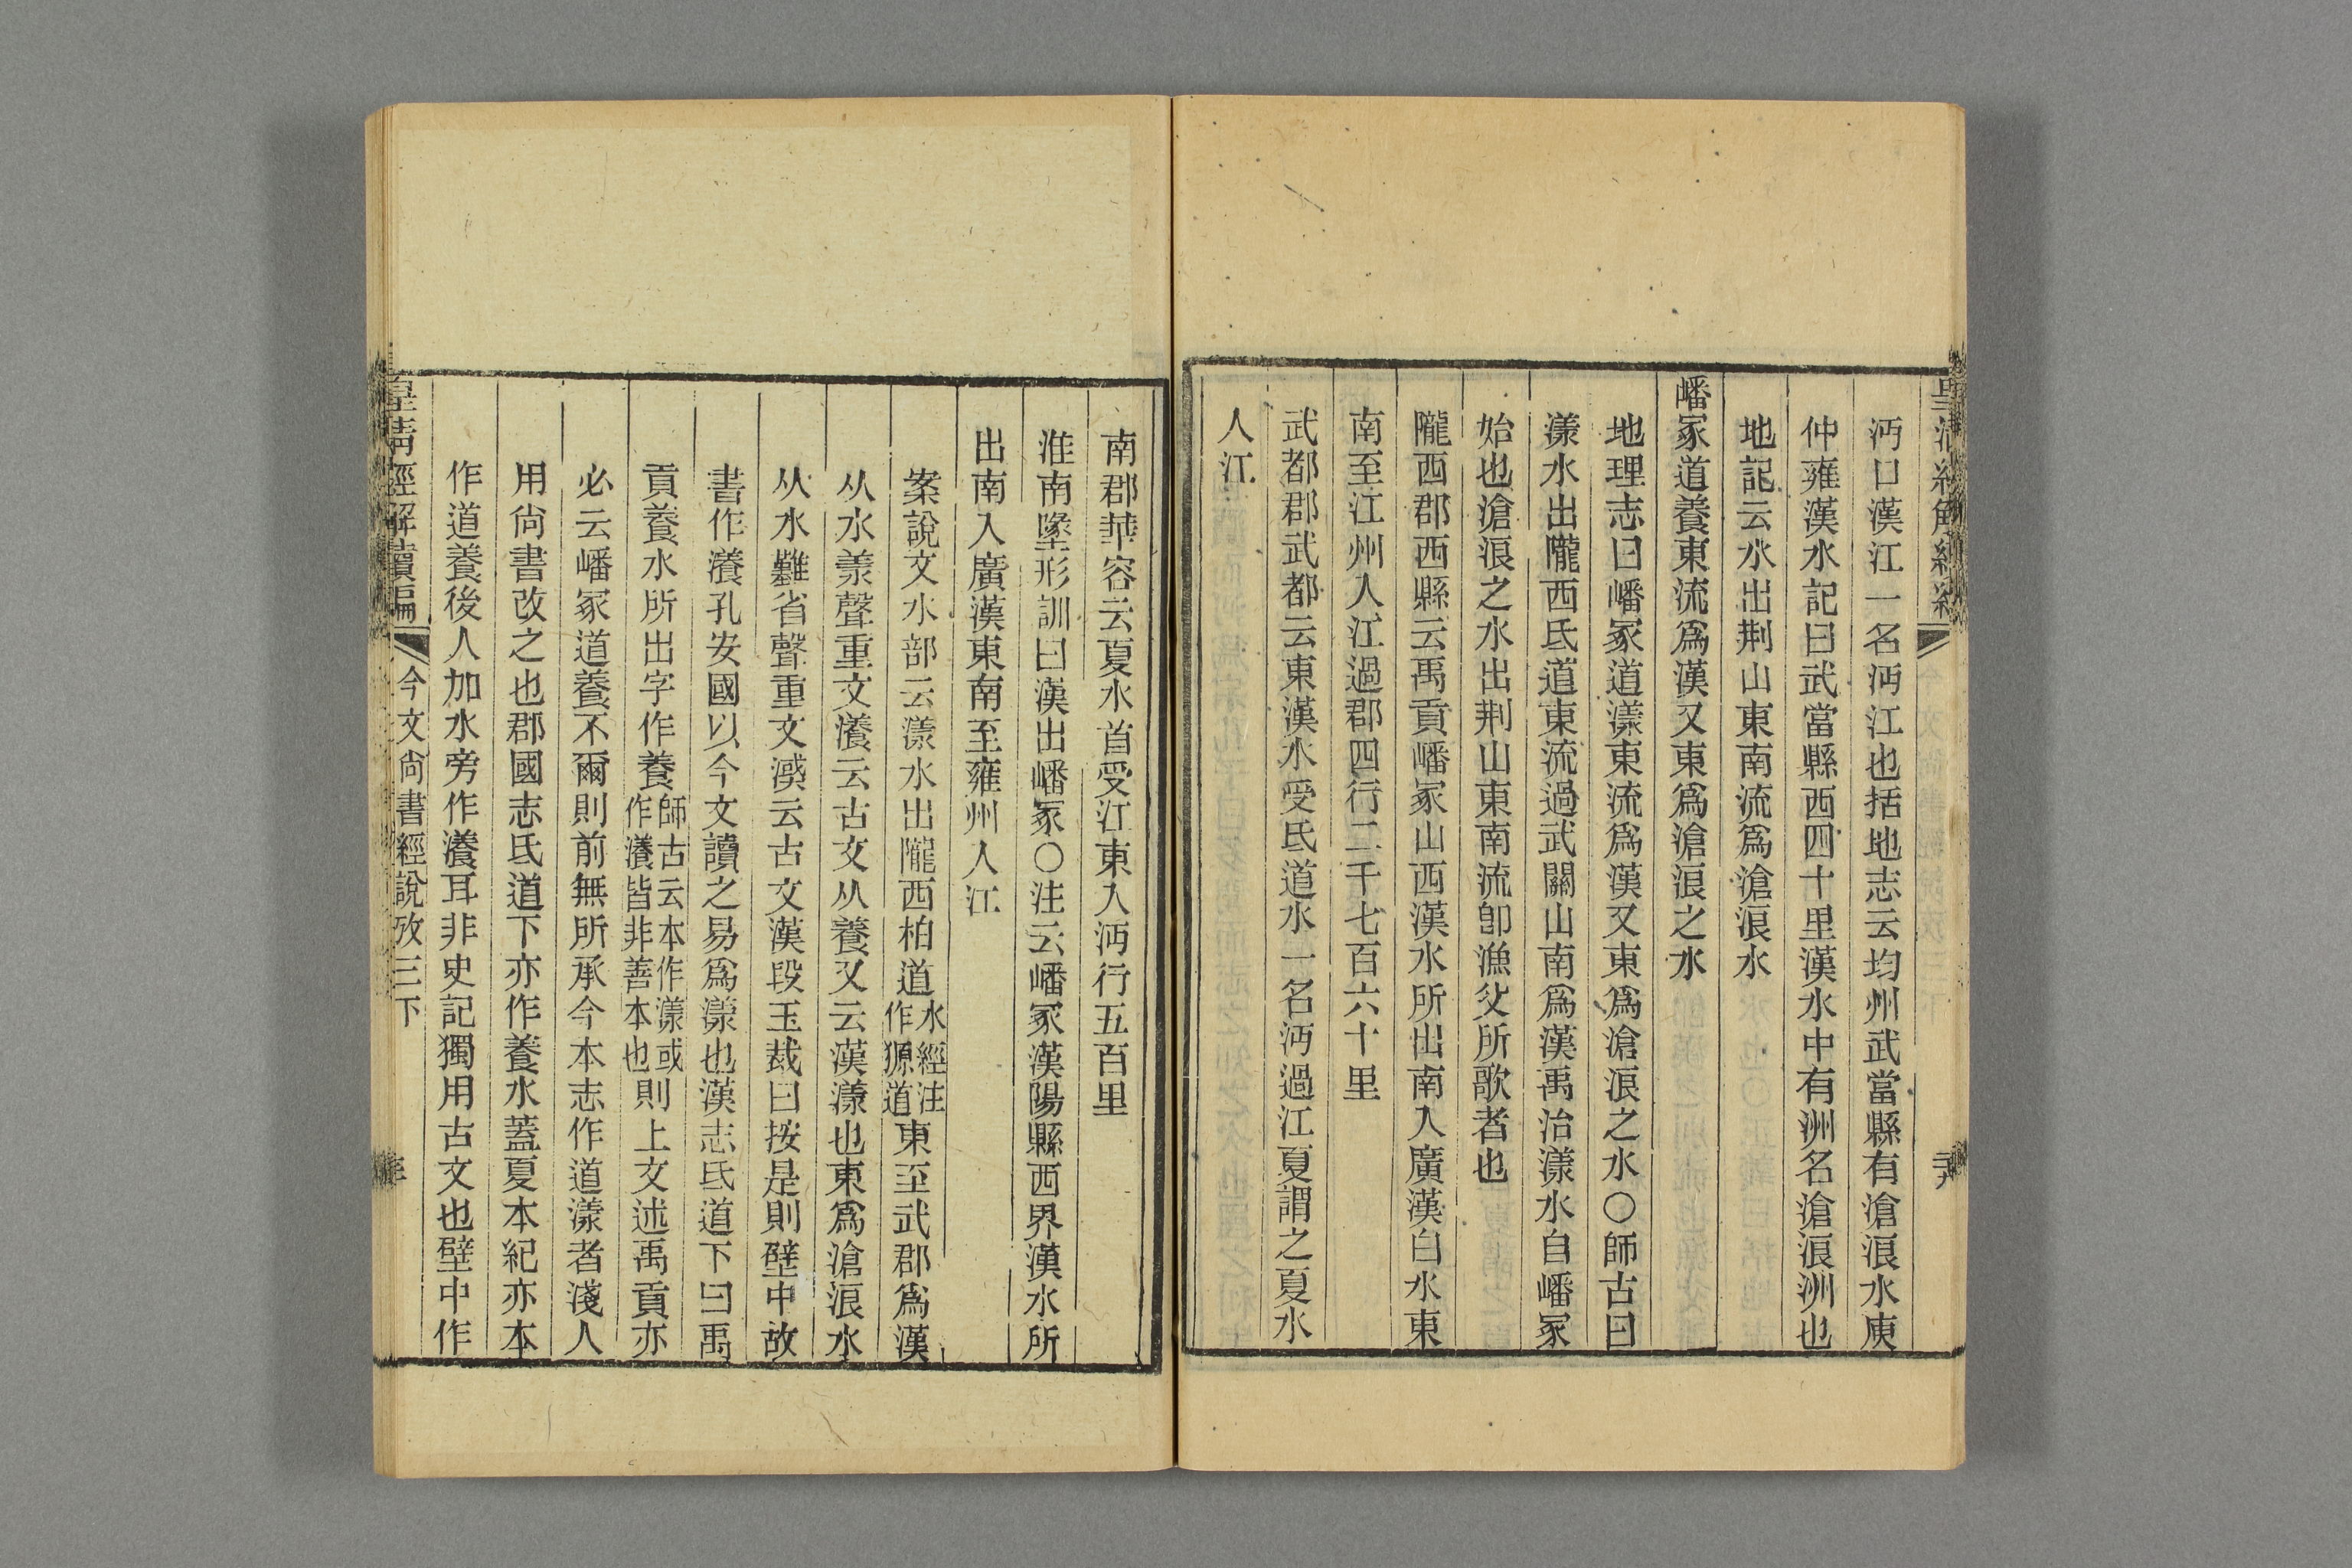 沔口漢江一名沔江也括地志云均州武當縣有滄浪水庾
仲雍漢水記曰武當縣西四十里漢水中有洲名滄浪洲也
地記云水出荆山東南流爲滄浪水
嶓冢道養東流爲漢又東爲滄浪之水
地理志曰嶓冢道漾東流爲漢又東爲滄浪之水〇師古曰
漾水出隴西氐道東流過武關山南爲漢禹治漾水自嶓冢
始也滄浪之水出荆山東南流卽漁父所歌者也
隴西郡西縣云禹貢嶓冢山西漢水所出南入廣漢白水東
南至江州入江過郡四行二千七百六十里
武都郡武都云東漢水受氐道水一名沔過江夏謂之夏水
入江
南郡華容云夏水首受江東入沔行五百里
淮南墬形訓曰漢出嶓冢〇注云嶓冢漢陽縣西界漢水所
出南入廣漢東南至雍州入江
案說文水部云漾水出隴西柏道水經注作獂道東至武郡爲漢
从水羕聲重文瀁云古文从養又云漢漾也東爲滄浪水
从水難省聲重文㵄云古文漢段玉裁曰按是則壁中故
書作瀁孔安國以今文讀之易爲漾也漢志氐道下曰禹
貢養水所出字作養師古云本作漾或作瀁皆非善本也則上文述禹貢亦
必云嶓冢道養不爾則前無所承今本志作道漾者淺人
用尙書改之也郡國志氐道下亦作養水蓋夏本紀亦本
作道養後人加水旁作瀁耳非史記獨用古文也壁中作
皇淸經解續編 今文尙書經說攷三下